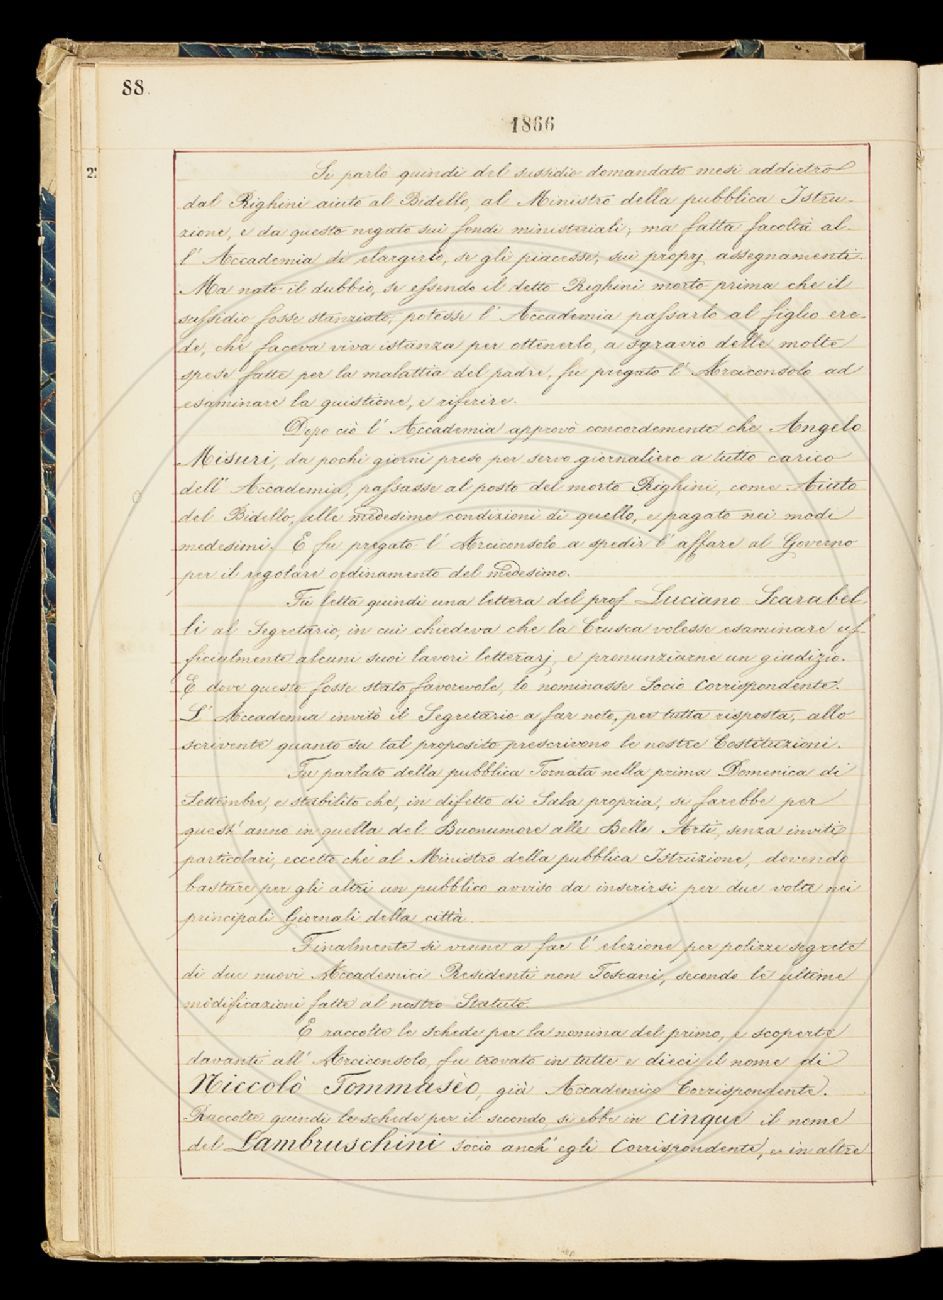 88.
1866
2
Si parlò quindi del sussidio domandato mesi addietro
dal Righini aiuto al Bidello, al Ministro della pubblica Istru-
zione, e da questo negato sui fondi ministeriali; ma fatta facoltà al-
l'Accademia di elargirlo, se gli piacesse, sui proprj assegnamenti.
Ma nato il dubbio, se essendo il detto Righini morto prima che il
sussidio fosse stanziato, potesse l'Accademia passarlo al figlio ere-
de, che faceva viva istanza per ottenerlo, a sgravio delle molte
spese fatte per la malattia del padre, fu pregato l'Arciconsolo ad
esaminare la quistione, e riferire.
Dopo ciò l'Accademia approvò concordemente che Angelo
Misuri, da pochi giorni preso per servo giornaliero a tutto carico
dell'Accademia, passasse al posto del morto Righini, come Aiuto
del Bidello, alle medesime condizioni di quello, e pagato nei modi
medesimi. E fu pregato l'Arciconsolo a spedir l'affare al Governo
per il regolare ordinamento del medesimo.
Fu letta quindi una lettera del prof. Luciano Scarabel
li al Segretario, in cui chiedeva che la Crusca volesse esaminare uf
ficialmente alcuni suoi lavori letterarj, e pronunziarne un giudizio.
E dove questo fosse stato favorevole, lo nominasse Socio corrispondente.
L'Accademia invitò il Segretario a far noto, per tutta risposta, allo
scrivente quanto su tal proposito prescrivono le nostre Costituzioni.
Fu parlato della pubblica Tornata nella prima Domenica di
Settembre, e stabilito che, in difetto di Sala propria, si farebbe per
quest'anno in quella del Buonumore alle Belle Arti, senza inviti
particolari, eccetto che al Ministro della pubblica Istruzione, dovendo
bastare per gli altri un pubblico avviso da inserirsi per due volte nei
principali Giornali della città.
Finalmente si venne a far l'elezione per polizze segrete
di due nuovi Accademici Residenti non Toscani, secondo le ultime
modificazioni fatte al nostro Statuto.
E raccolte le schede per la nomina del primo, e scoperte
davanti all'Arciconsolo, fu trovato in tutte e dieci il nome di
Niccolò Tommasèo, già Accademico Corrispondente.
Raccolte quindi le schede per il secondo, si ebbe in cinque il nome
del Lambruschini socio anch'egli Corrispondente, e in altre